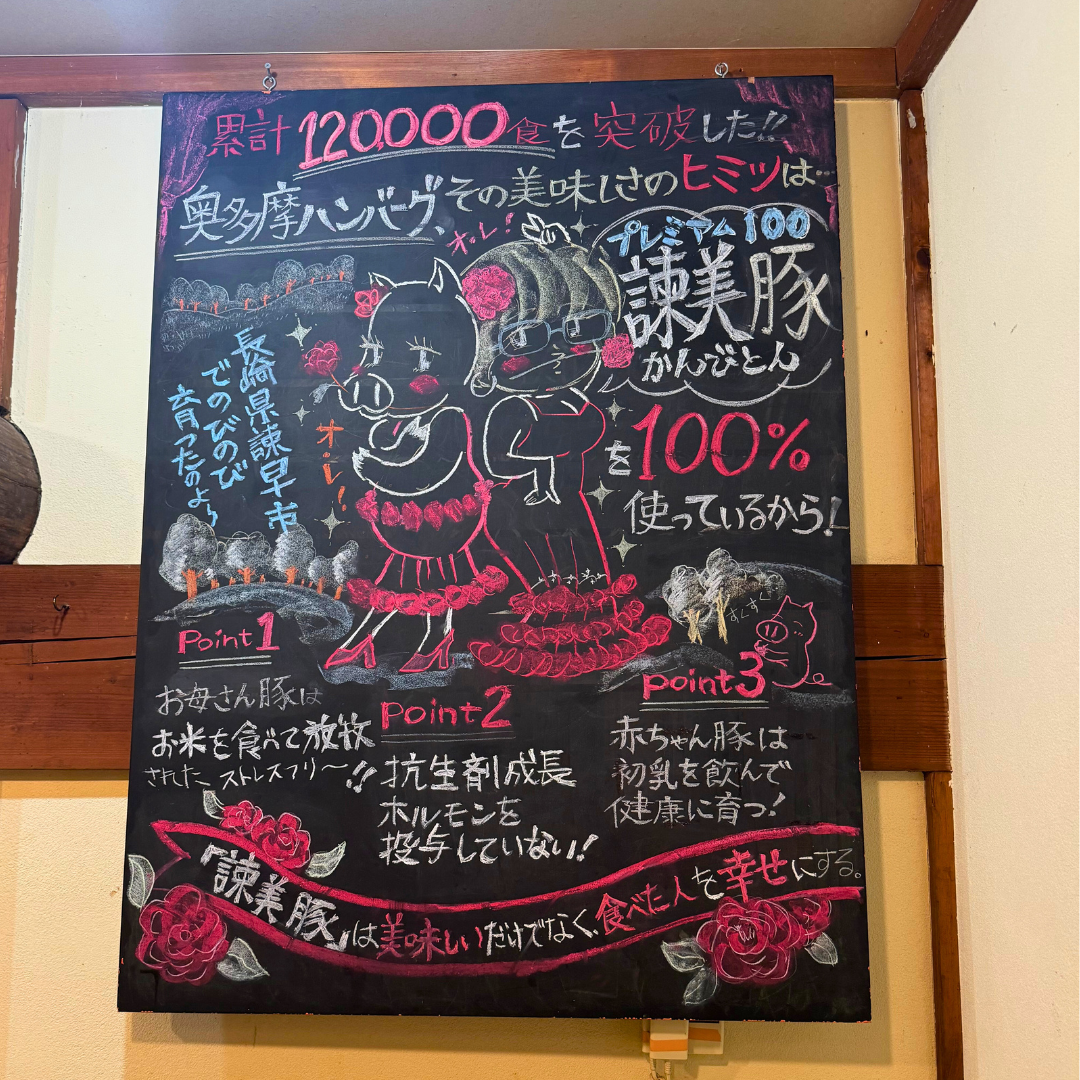 累計120,000食を突破した!!
奥多摩ハンバーグ、その美味しさのヒミツは…
オ・レ!
プレミアム100
諫美豚
かんびとん
を100%
使っているから!
長崎県諫早市
でのびのび
育ったのよ〜
オ・レ!
Point1
お母さん豚は
お米を食べて放牧
された、ストレスフリー!!
point2
抗生剤成長
ホルモンを
投与していない!
すくすく
point3
赤ちゃん豚は
初乳を飲んで
健康に育つ!
「諫美豚」は美味しいだけでなく、食べた人を幸せにする。